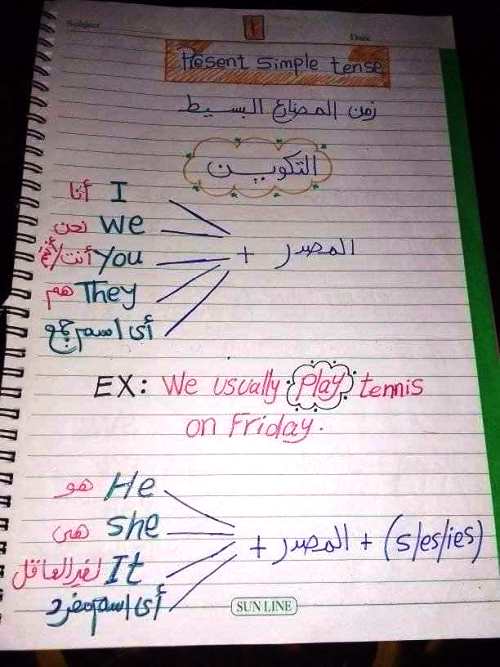 Subject
1
Date
Present simple tense
زمن المضارع البسيط
التكوين
I أنا
We نحن
You أنت/أنتم
They هم
أى اسم جمع
+ المصدر
EX: We usually play tennis
on Friday.
He هو
she هى
It لغير العاقل
أى اسم مفرد
+ المصدر + (s/es/ies)
SUN LINE